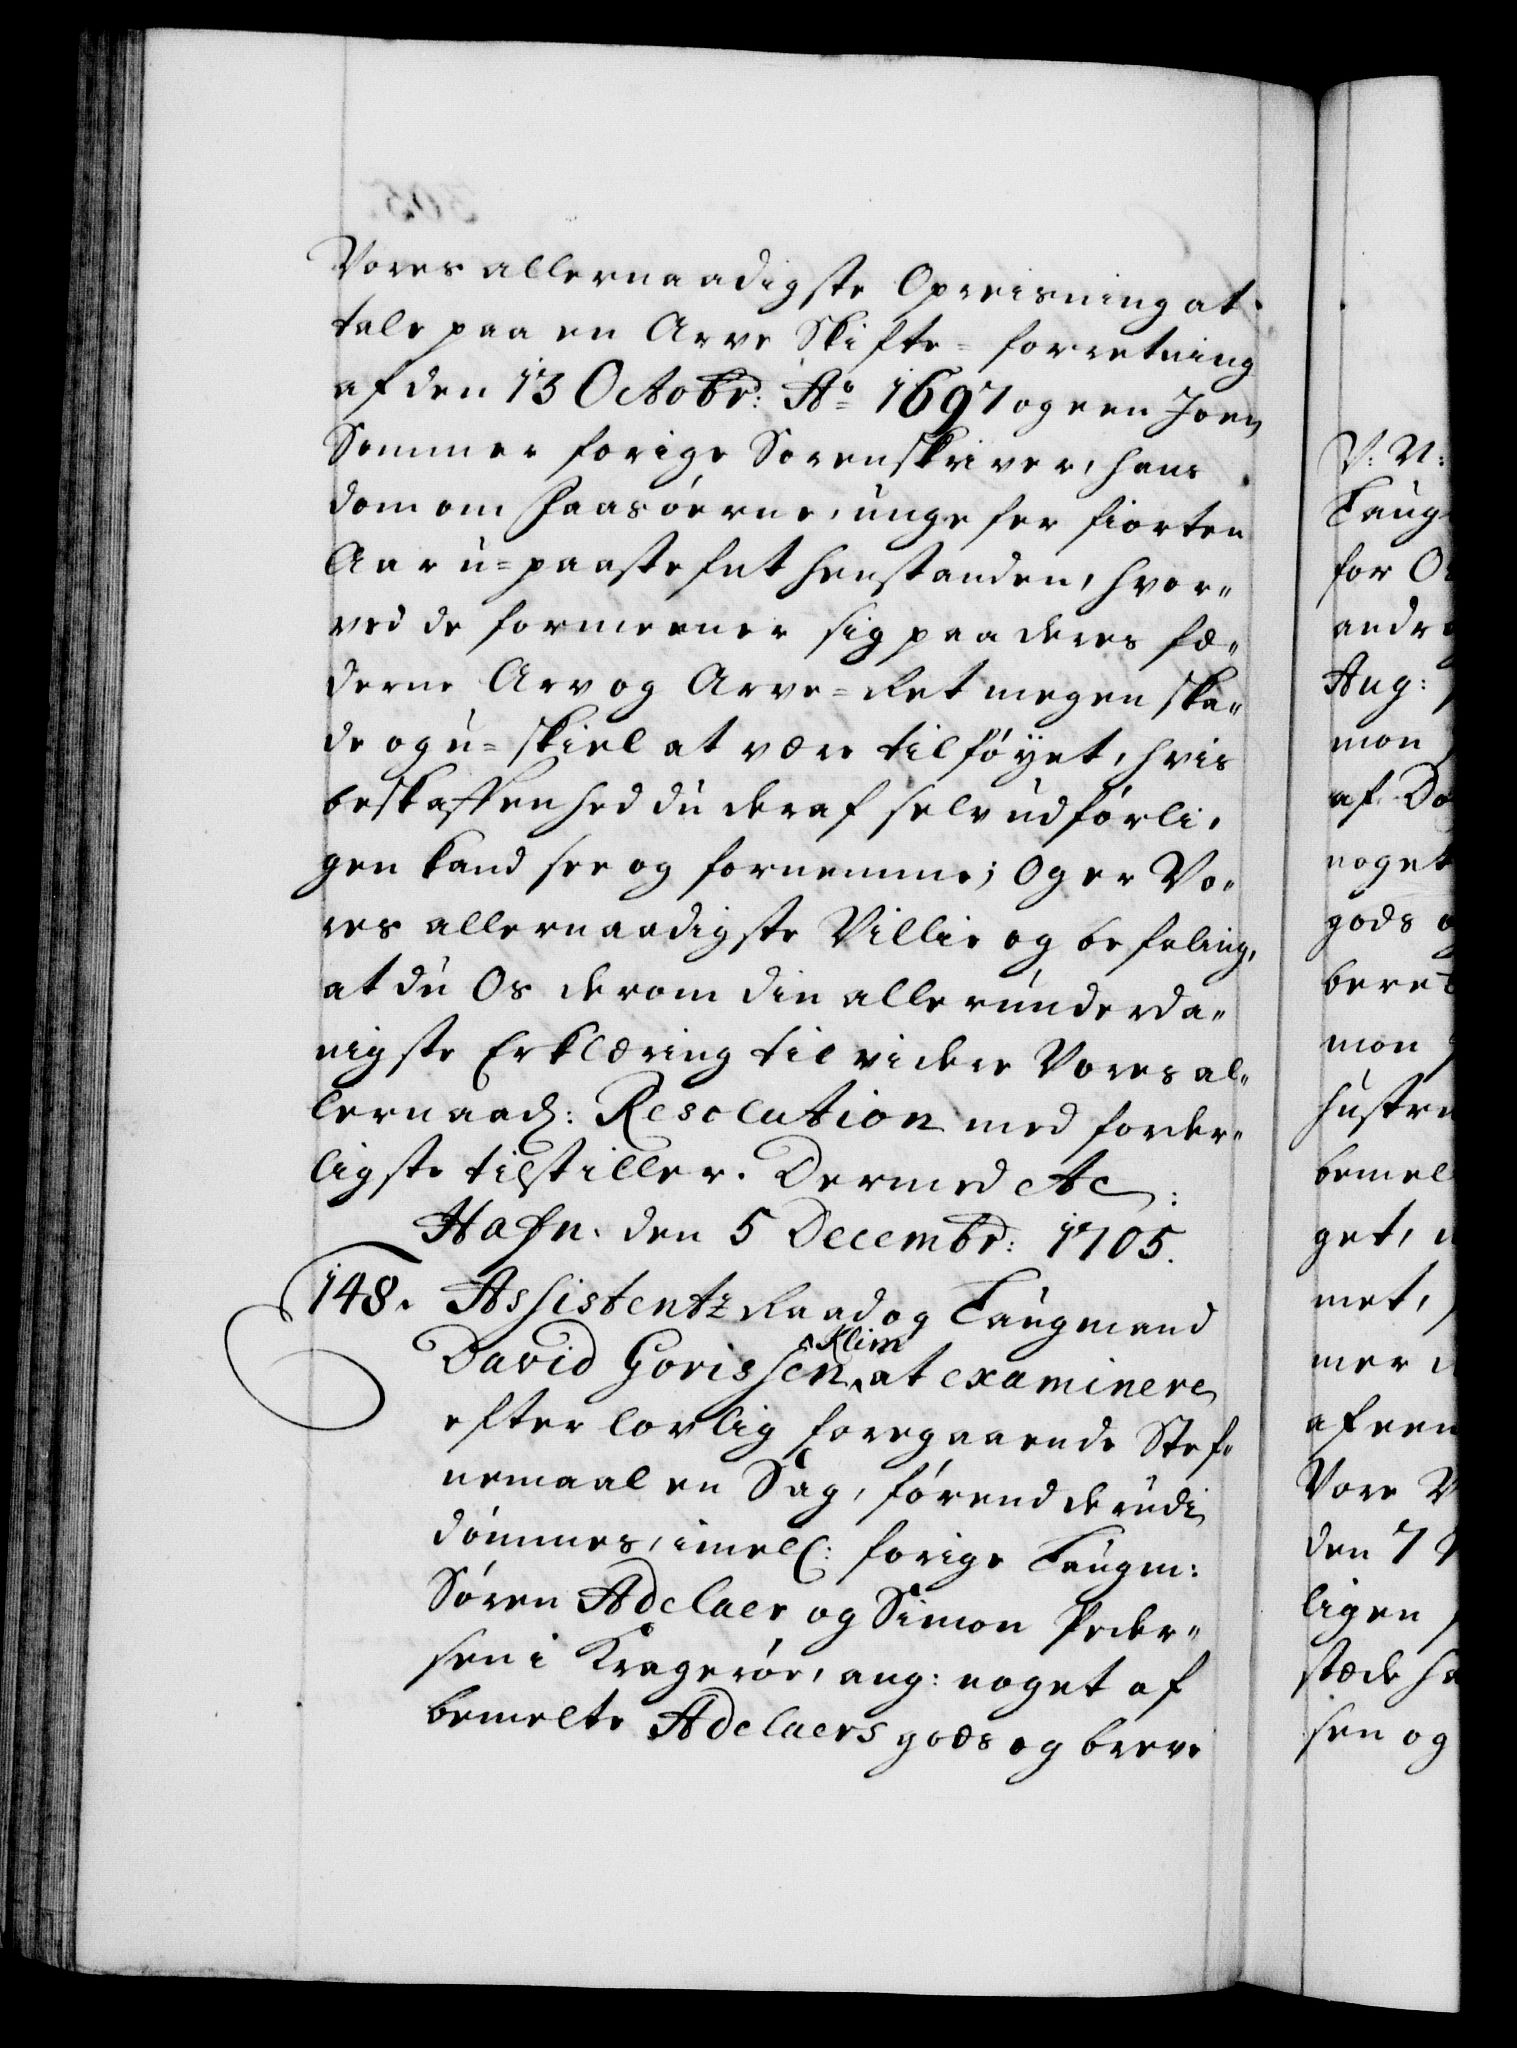 Vores allernaadigste Opreisning at
tale paa en Arve Skifte= forretning
af den 13 Octobr: Ao 1697 og een Joen
Sommer forige Sorenskriver, hans
dom om Haasöerne, ungefer fiorten
Aar u=paastefnt henstanden, hvor„
ved de formeener sig paa deres fæ„
derne Arv og Arve=Ret megen ska„
de og u=skiel at være tilföyet, hvis
beskaffenhed du deraf selv udförli„
gen kand see og fornemme; Og er Vo„
res allernaadigste Villie og befaling,
at du Os derom din allerunderda„
nigste Erklæring til videre Vores al„
lernaad: Resolution med forder„
ligste tilstiller. Dermed etc:
Hafn. den 5 Decembr: 1705.
148. Assistentz Raad og Laugmand
David Gorissen Klim at examinere
efter lovlig foregaaende Stef„
nemaal en Sag, förend derudi
dömmes, imell: forige Laugm:
Sören Adelaer og Simon Peder„
sen i Krageröe, ang: noget af
bemelte Adelaers gods og breve
V: V:
Laug
for O
andr
Aug:
mon
af Do
noget
gods o
beret
mon
hustru
bemel
get,
met,
mer
af een
Vore V
den 7
ligen
stæde ha
sen og